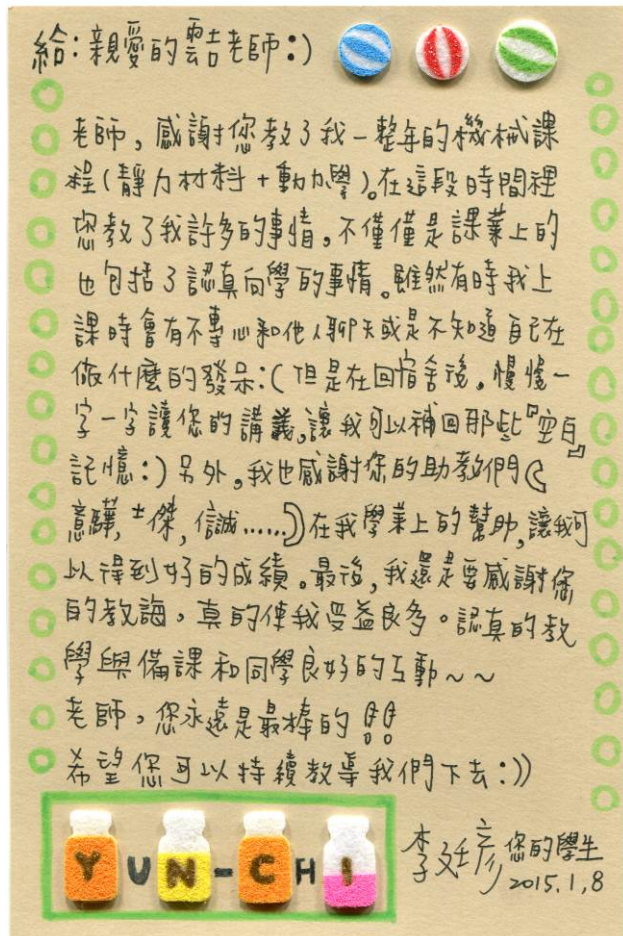 給:親愛的雲吉老師:)
老師,感謝您教了我一整年的機械課
程(靜力材料+動力學)。在這段時間裡
您教了我許多的事情。不僅僅是課業上的
也包括了認真向學的事情。雖然有時我上
課時會有不專心和他人聊天或是不知道自己在
做什麼的發呆:( 但是在回宿舍後。慢慢一
字一字讀您的講義,讓我可以補回那些『空白』
記憶:) 另外,我也感謝您的助教們(
意驊,士傑,信誠......)在我學業上的幫助,讓我可
以得到好的成績。最後,我還是要感謝您
的教誨,真的使我受益良多。認真的教
學與備課和同學良好的互動~~
老師,您永遠是最棒的!!
希望您可以持續教導我們下去:))
YUN-CHI
李廷彥 您的學生
2015.1,8